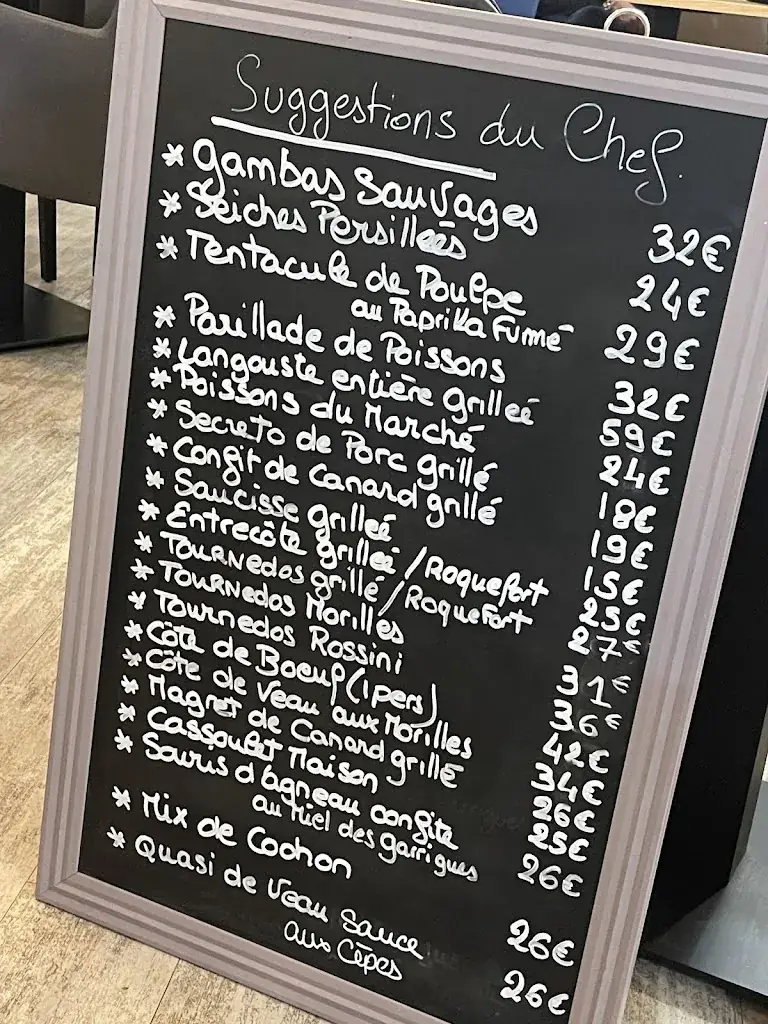 Suggestions du Chef.
* Gambas Sauvages 32€
* Seiches Persillées 24€
* Tentacule de Poulpe
au Paprika Fumé 29€
* Parillade de Poissons 32€
* Langouste entière grilleé 59€
* Poissons du Marché 24€
* Secreto de Porc grillé 18€
* Confit de Canard grillé 19€
* Saucisse grilleé 15€
* Entrecôte grilleé / Roquefort 25€
* Tournedos grillé / Roquefort 27€
* Tournedos Morilles 31€
* Tournedos Rossini 36€
* Côte de Boeuf (1 pers) 42€
* Côte de Veau aux Morilles 34€
* Magret de Canard grillé 26€
* Cassoulet Maison 25€
* Souris d'agneau confite
au Miel des garrigues 26€
* Mix de Cochon 26€
* Quasi de Veau Sauce
aux Cèpes 26€